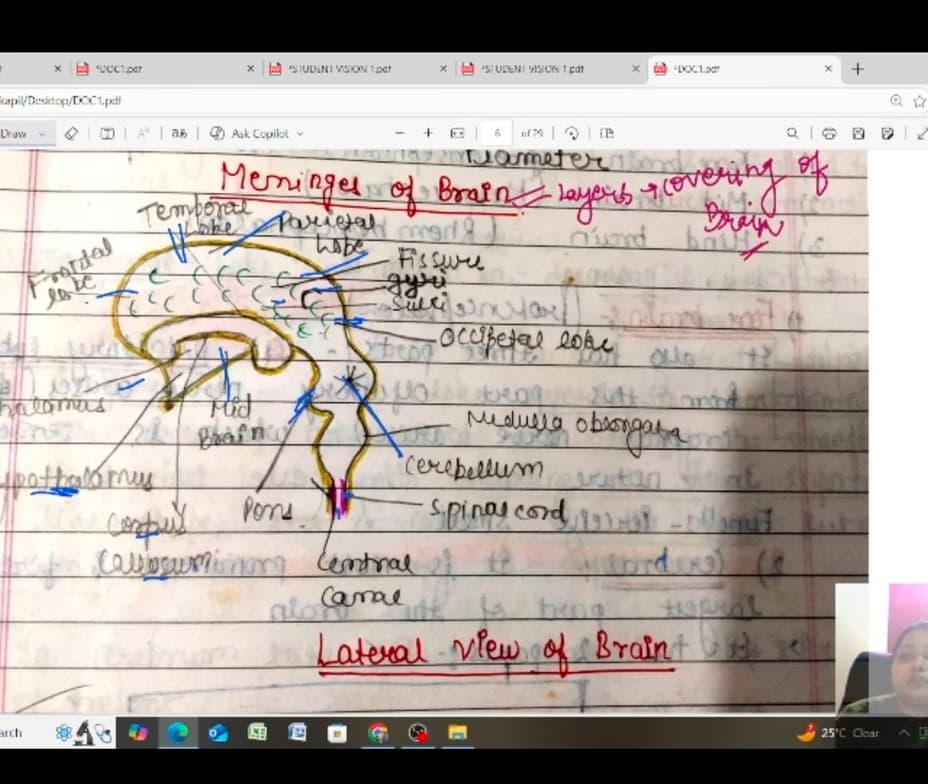 *DOC1.pdf
*STUDENT VISION 1.pdf
*STUDENT VISION 1.pdf
*DOC1.pdf
kapil/Desktop/DOC1.pdf
Draw
Ask Copilot
6
of 29
Diameter
Meninges of Brain
Layers → covering of
Brain
Temporal
Lobe
Parietal
Lobe
Frontal
lobe
Fissure
gyri
Sulci
Occipetal lobe
halamus
Mid
Brain
Medulla obeongata
Cerebellum
pothalamus
Corpus
Pons
Spinal cord
Callosum
Central
Canal
Lateral view of Brain
arch
25°C Clear